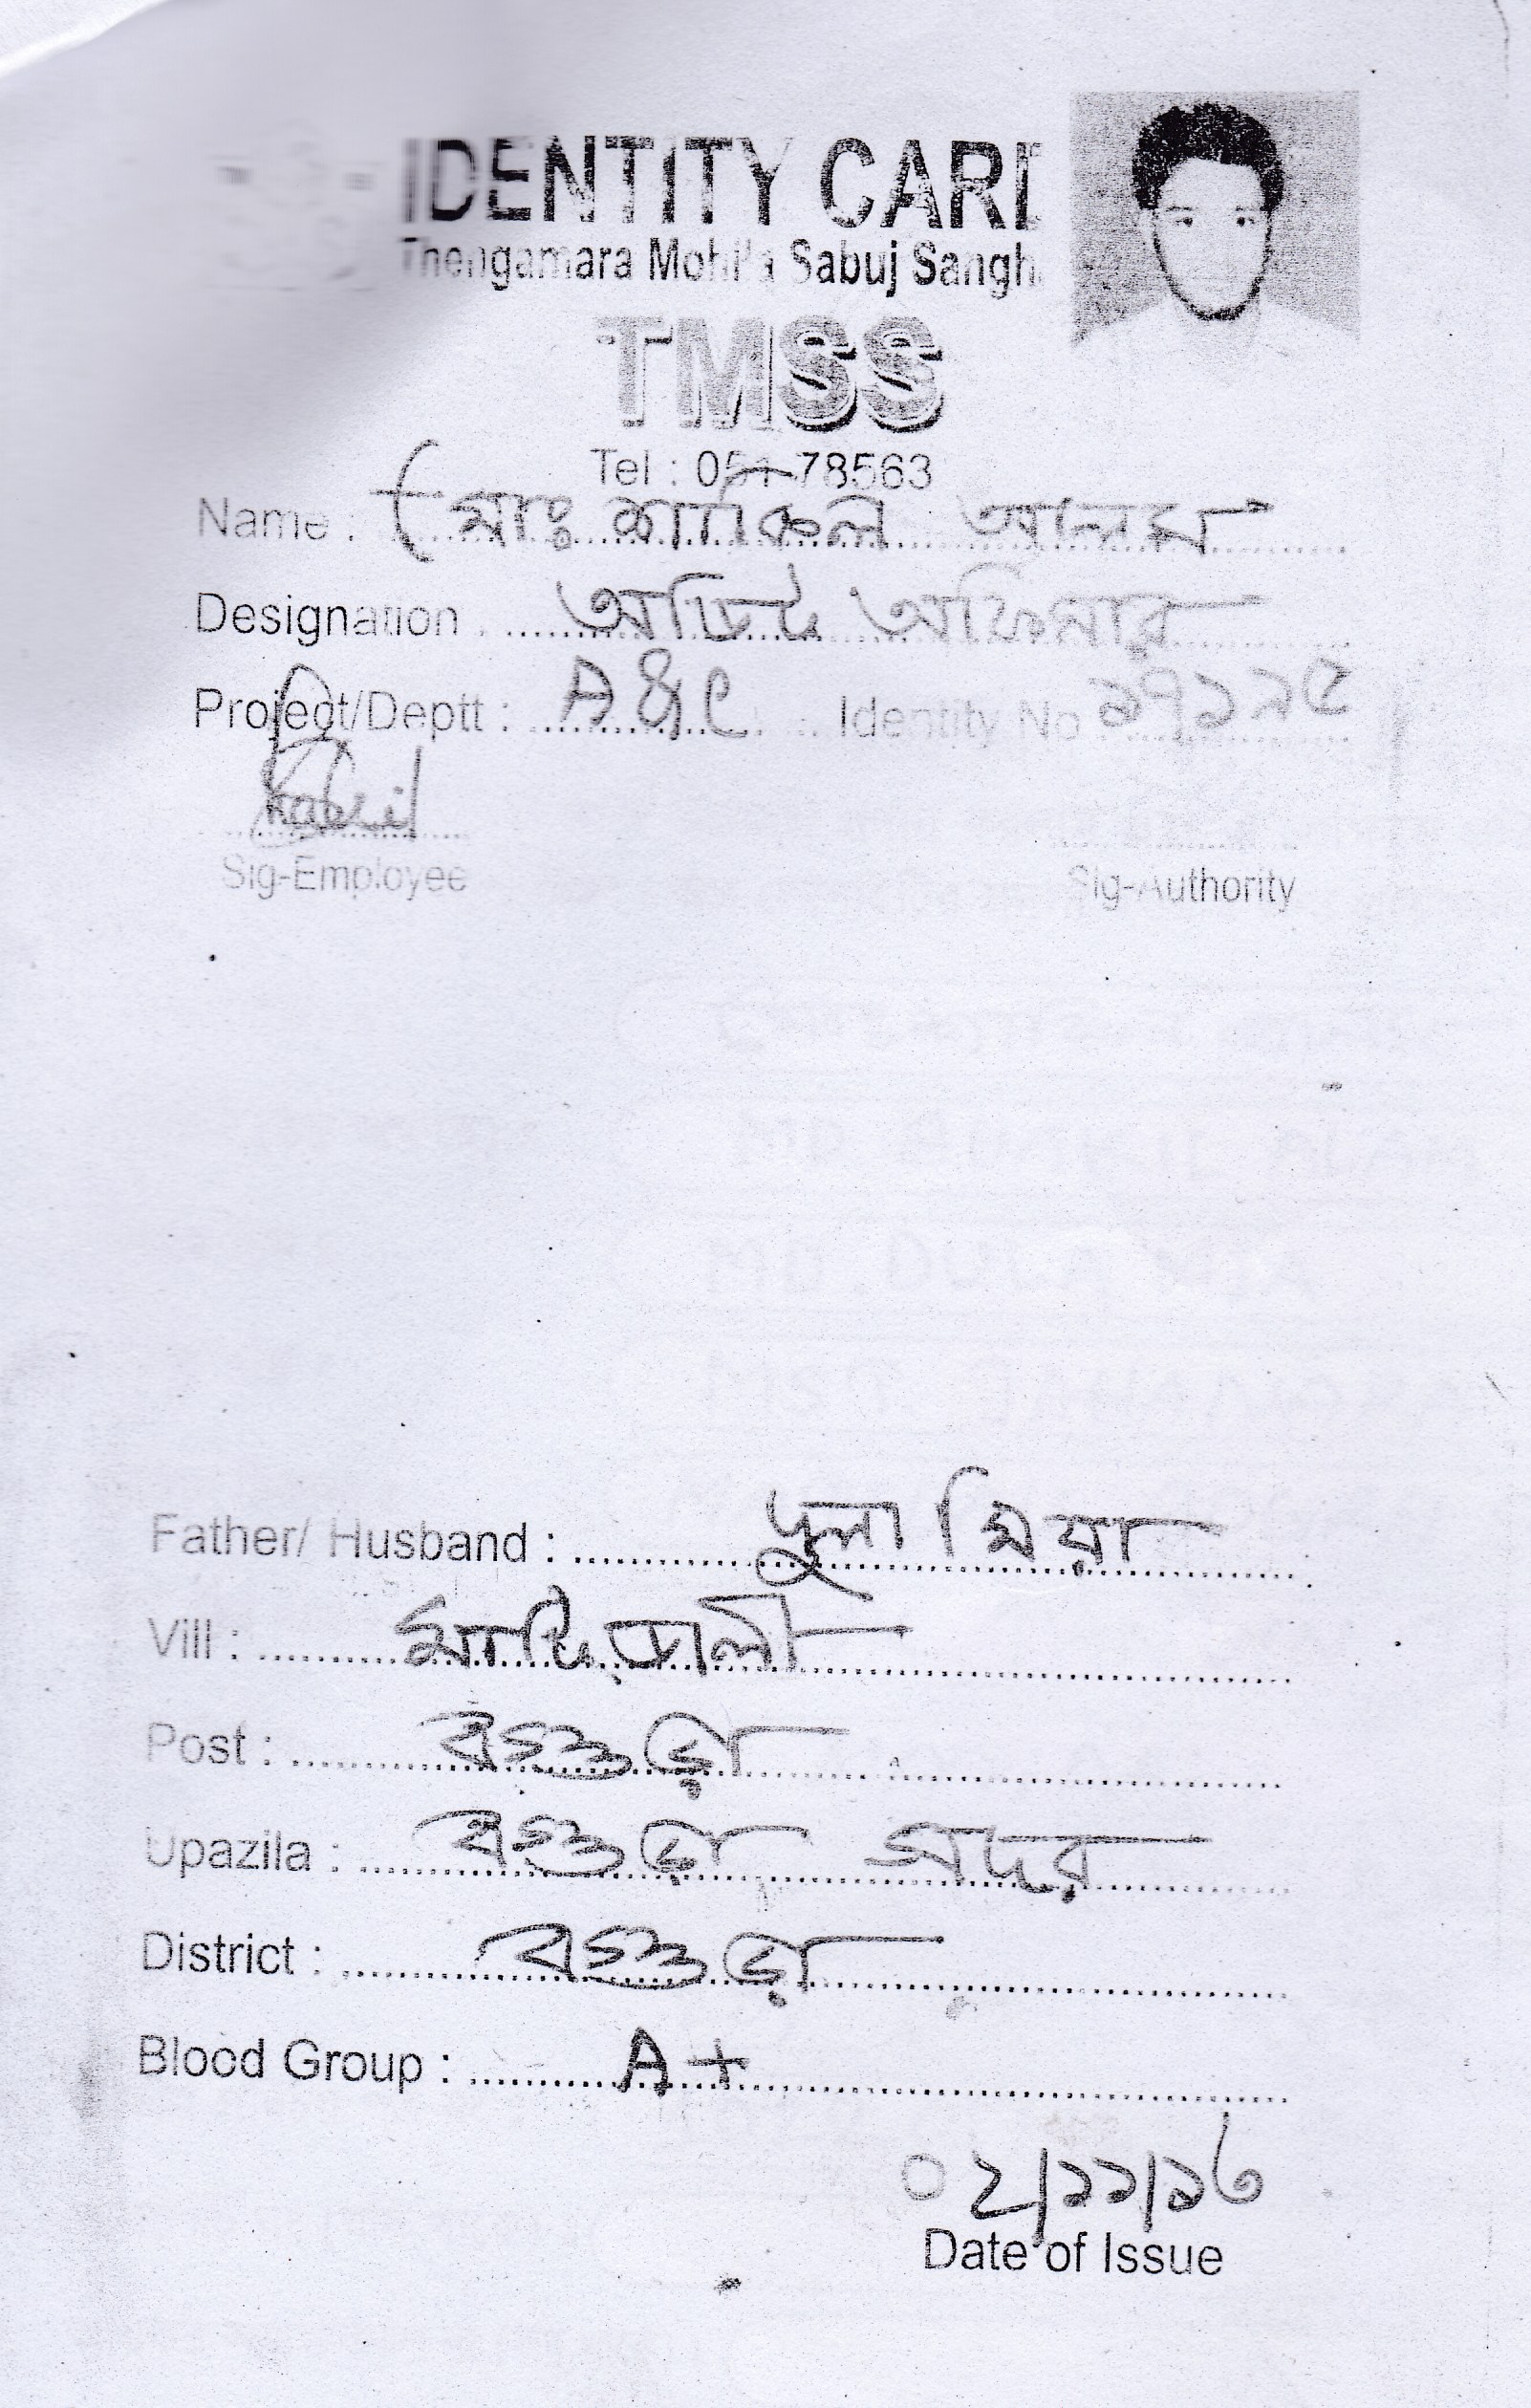 IDENTITY CARD
Thengamara Mohila Sabuj Sangha
TMSS
Tel : 051-78563
Name : মোঃ শাকিল আলম
Designation : অডিট অফিসার
Project/Deptt : A & C Identity No ১৭১৯৫
Sig-Employee Sig-Authority
Father/ Husband : দুলা মিয়া
Vill :
Post : বগুড়া
Upazila : বগুড়া সদর
District : বগুড়া
Blood Group : A+
০২/১১/১৬
Date of Issue